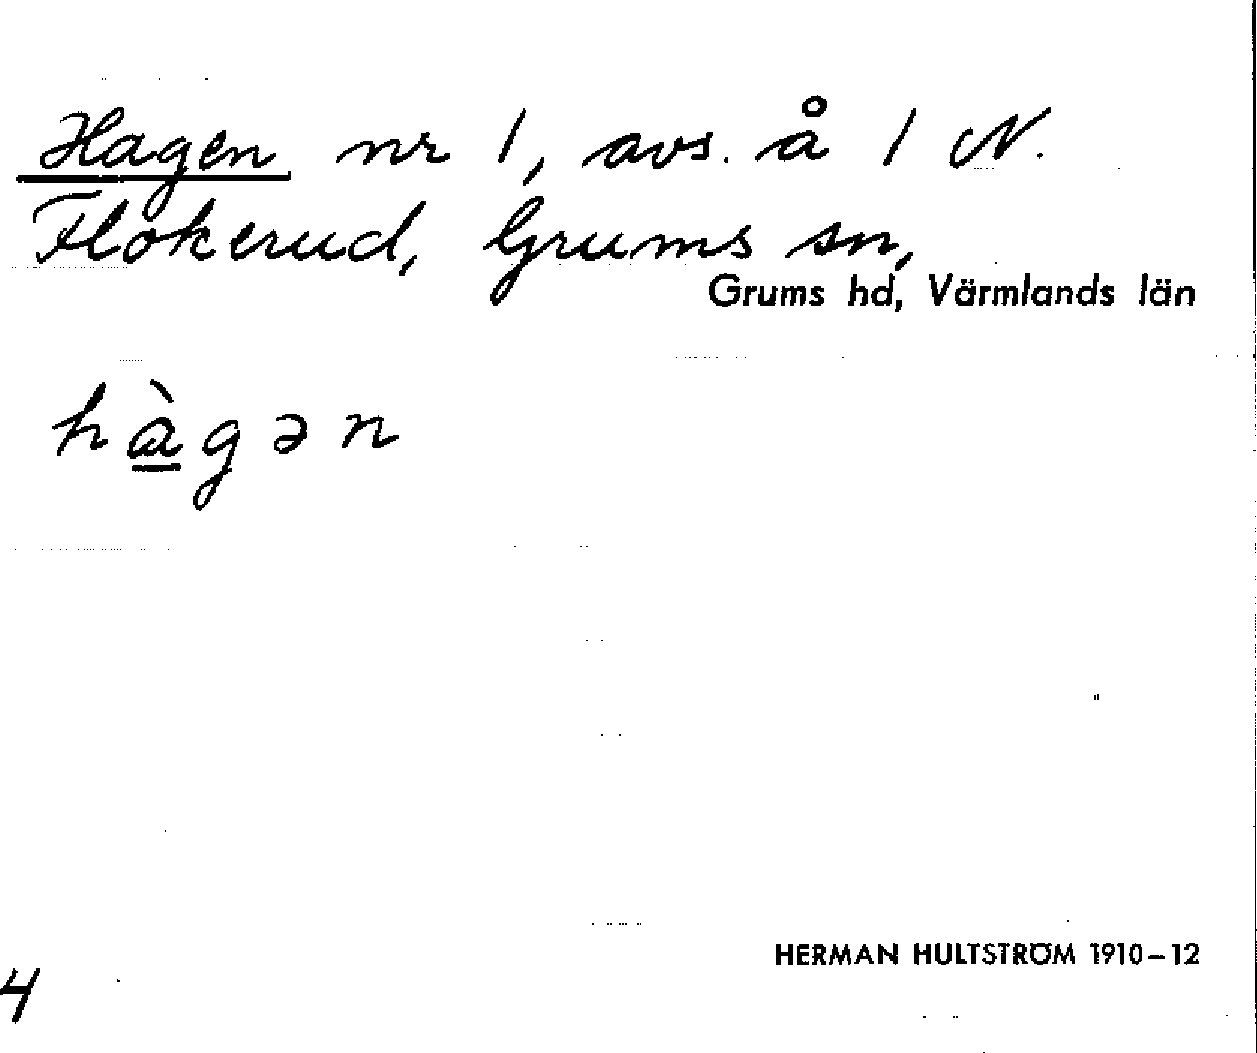 Hagen nr 1, avs. å 1 N.
Flokerud, Grums sn,
Grums hd, Värmlands län
hàgən
HERMAN HULTSTRÖM 1910-12
4